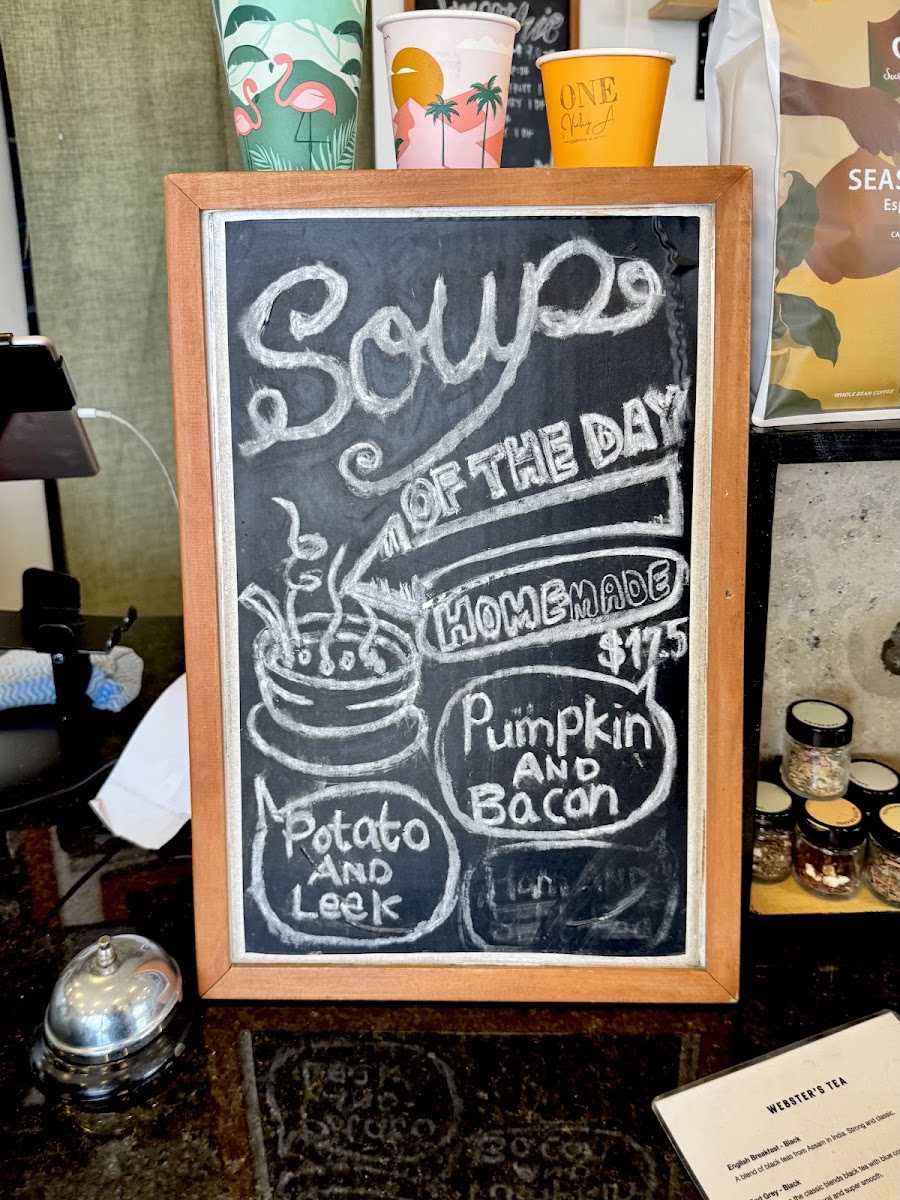 ONE
Soup
OF THE DAY
HOMEMADE
$17.5
Pumpkin
AND
Bacon
Potato
AND
Leek
Ham AND
WHOLE BEAN COFFEE
WEBSTER'S TEA
English Breakfast - Black
A blend of black teas from Assam in India. Strong and classic.
Grey - Black
the classic blends black tea with blue
and super smooth.